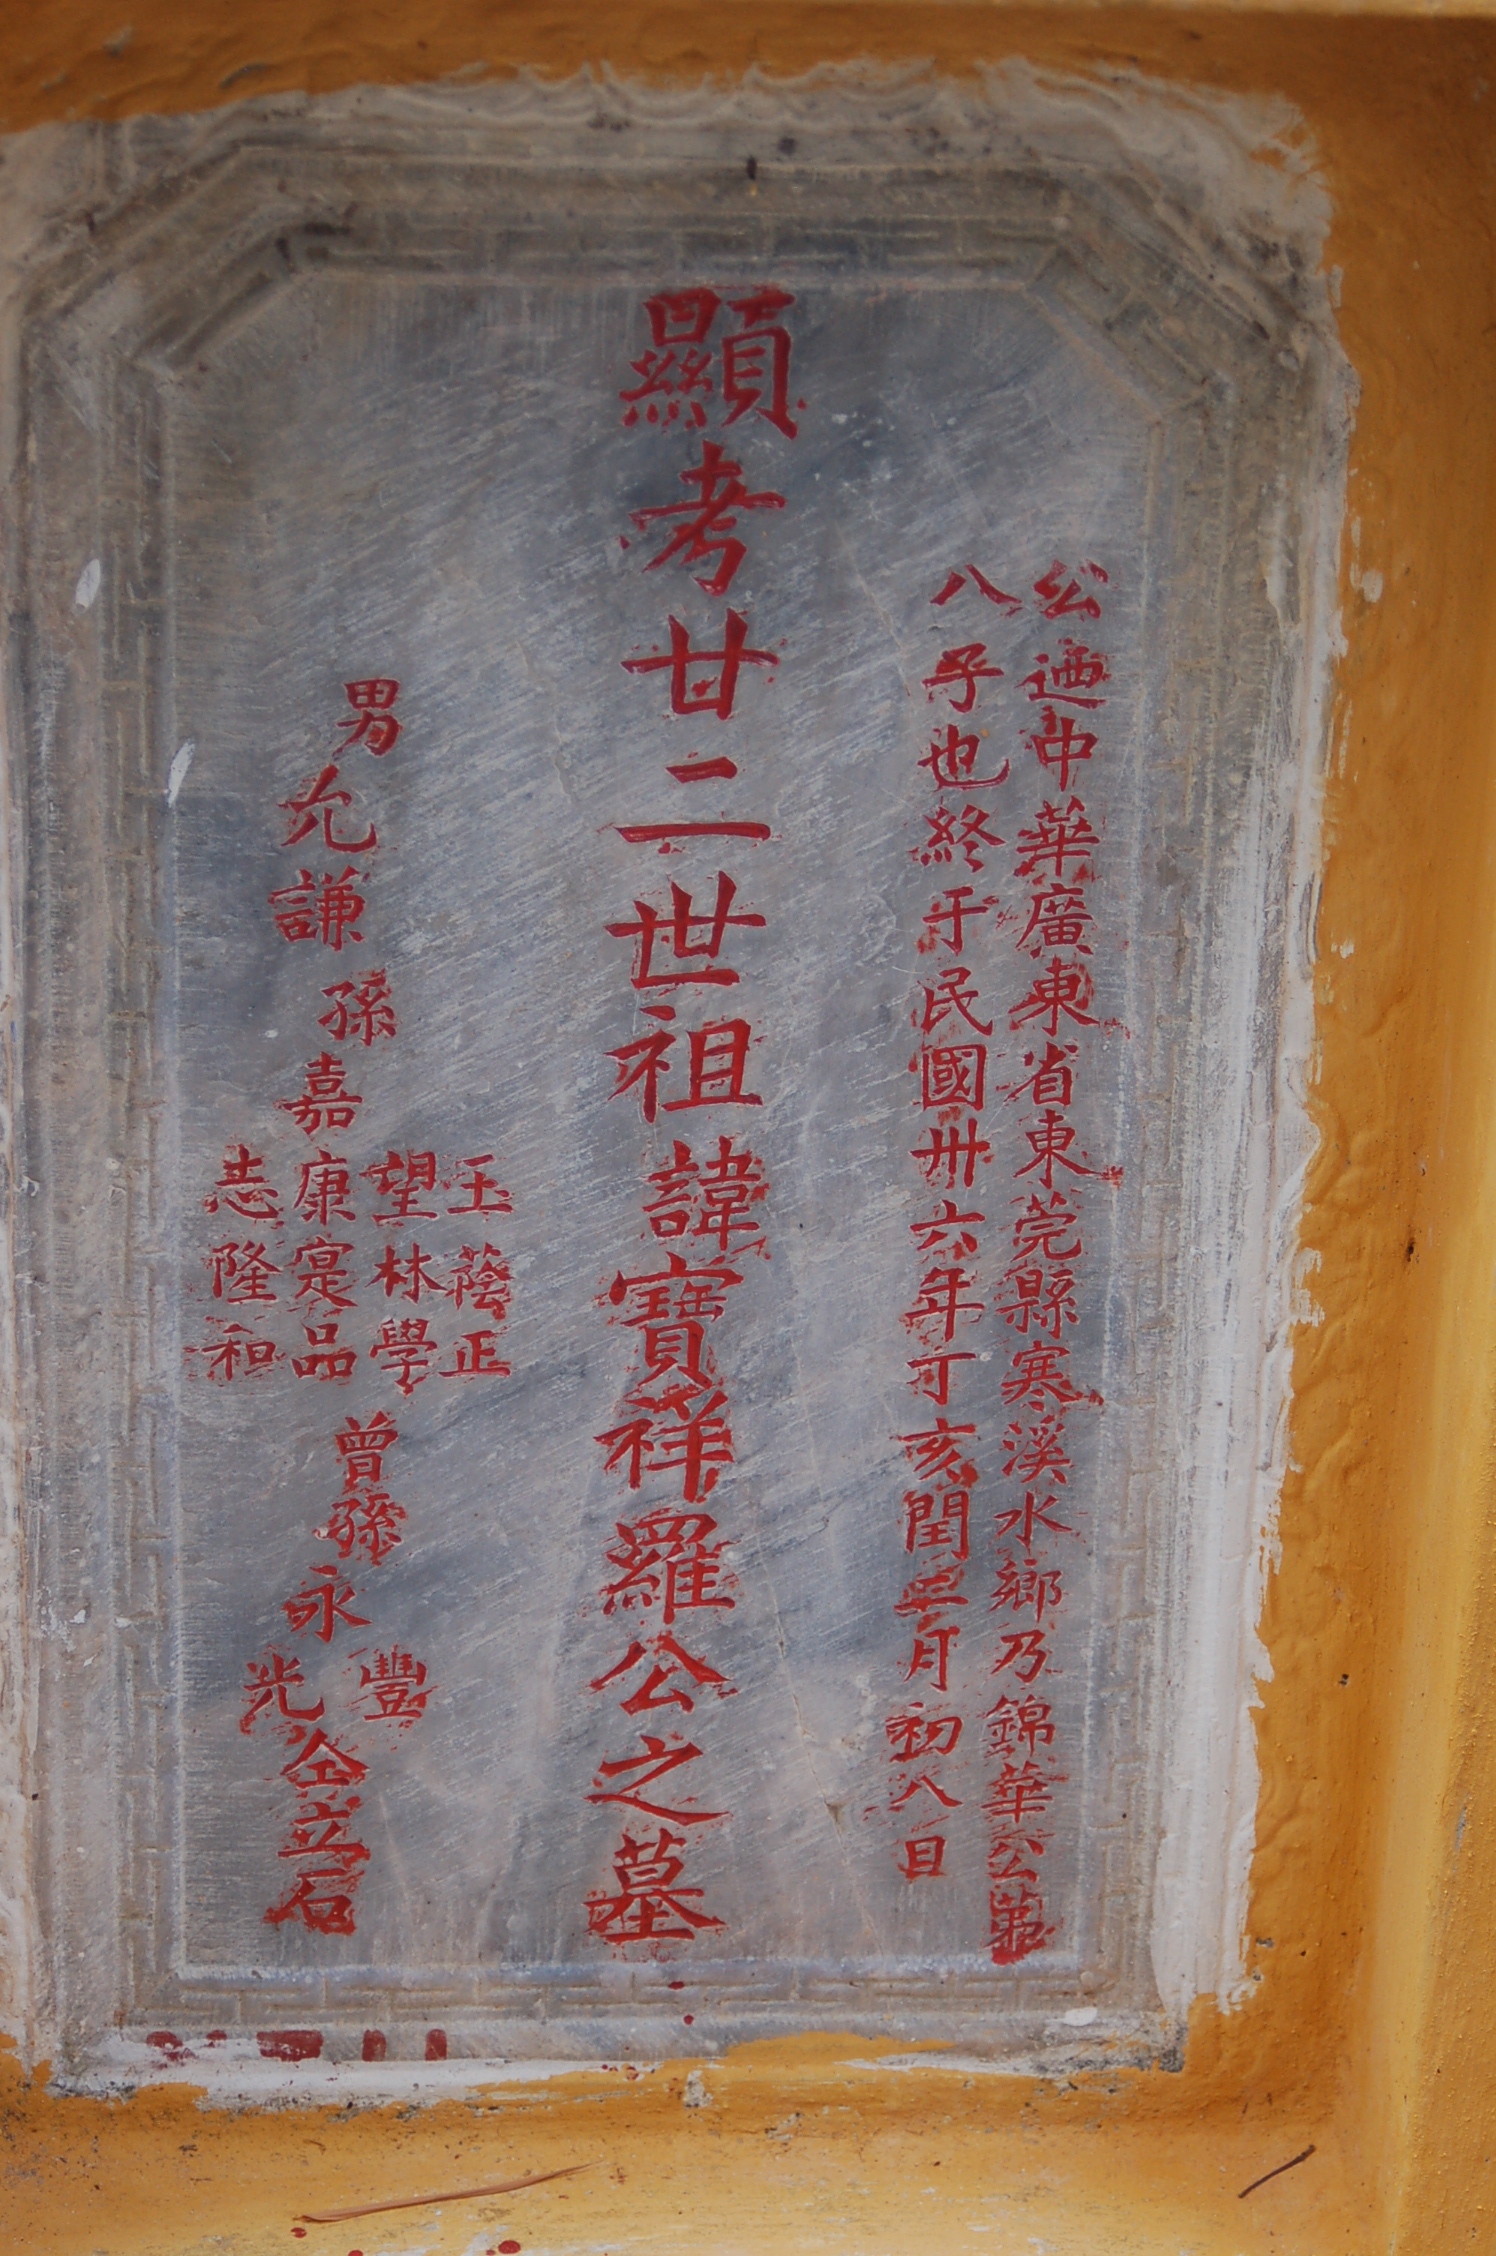 公迺中華廣東省東莞縣寒溪水鄉乃錦華公第
八子也終于民國卅六年丁亥閏二月初八日
顯考廿二世祖諱寶祥羅公之墓
男允謙
孫嘉
玉蔭正
望林學
康寔品
志隆和
曾孫永
豐
光
仝立石